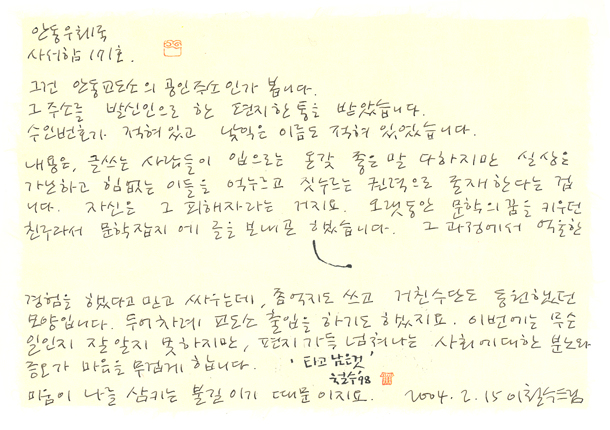 안동우체국
사서함 171호.
그건 안동교도소의 공인주소인가 봅니다.
그 주소를 발신인으로 한 편지 한통을 받았습니다.
수인번호가 적혀 있고 낯익은 이름도 적혀 있었습니다.
내용은, 글쓰는 사람들이 입으로는 온갖 좋은 말 다하지만 실상은
가난하고 힘없는 이들을 억누르고 짓누르는 권력으로 존재한다는 겁
니다. 자신은 그 피해자라는 거지요. 오랫동안 문학의 꿈을 키우던
친구라서 문학잡지에 글을 보내곤 했습니다. 그 과정에서 억울한
경험을 했다고 믿고 싸우는데, 좀 억지도 쓰고 거친수단도 동원했던
모양입니다. 두어차례 교도소 출입을 하기도 했지요. 이번에는 무슨
일인지 잘 알지 못하지만, 편지 가득 넘쳐나는 사회에 대한 분노와
증오가 마음을 무겁게 합니다. '타고 남은 것'
철수 98
미움이 나를 삼키는 불길이기 때문이지요. 2004. 2. 15 이철수드림